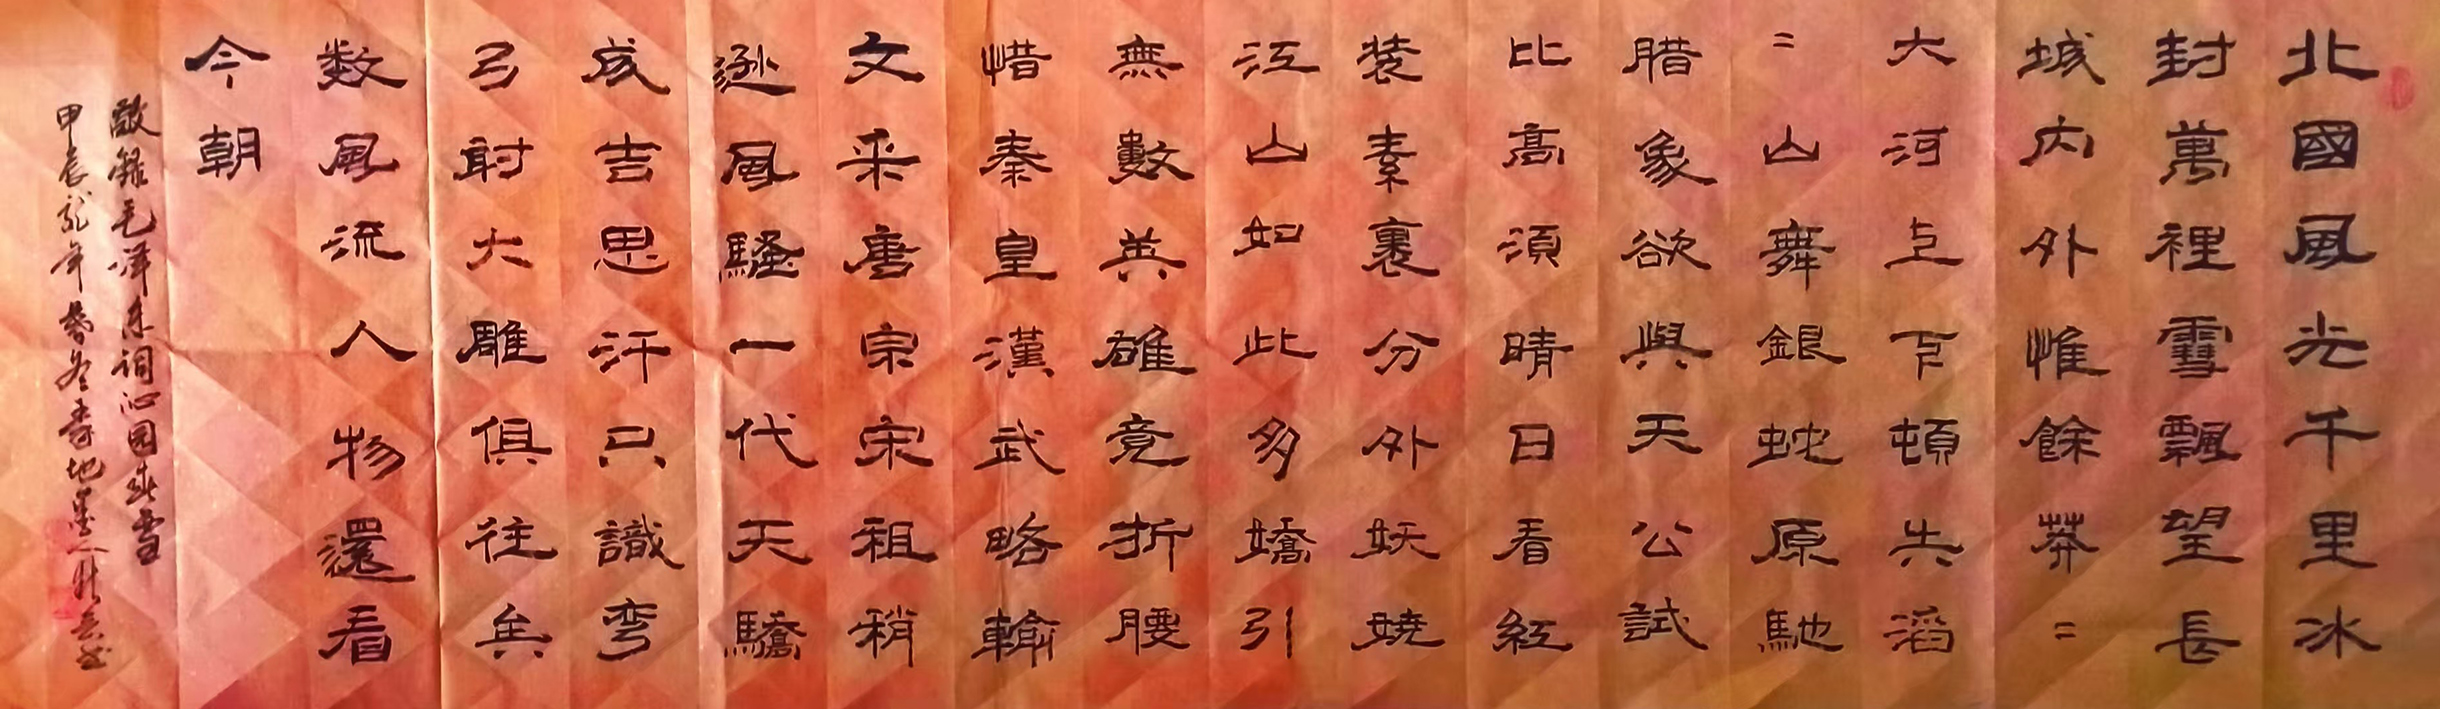 北國風光千里冰
封萬裡雪飄望長
城内外惟餘莽=
大河上下頓失滔
=山舞銀蛇原馳
腊象欲與天公試
比高須晴日看紅
装素裹分外妖娆
江山如此多嬌引
無數英雄竞折腰
惜秦皇漢武略輸
文采唐宗宋祖稍
遜風騷一代天驕
成吉思汗只識弯
弓射大雕俱往矣
数風流人物還看
今朝
敬錄毛泽东词沁园春雪
甲辰龙年暮冬